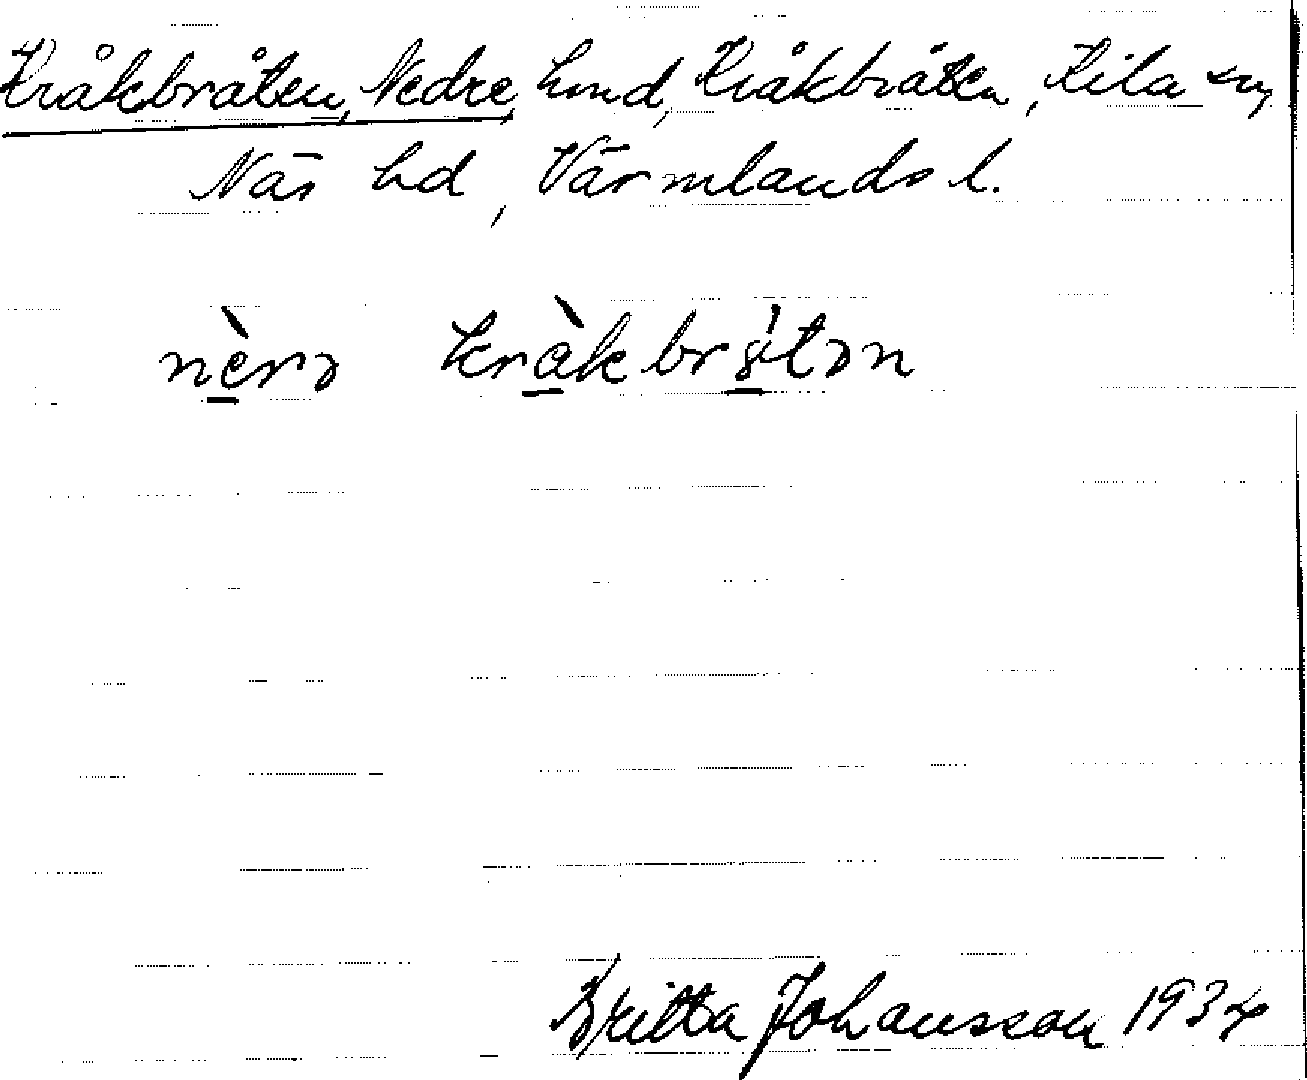 Kråkbråten, Nedre, hmd, Kråkbråten, Kila sn,
Näs hd, Värmlands l.
nèrə kràkbrátən
Britta Johansson 1934